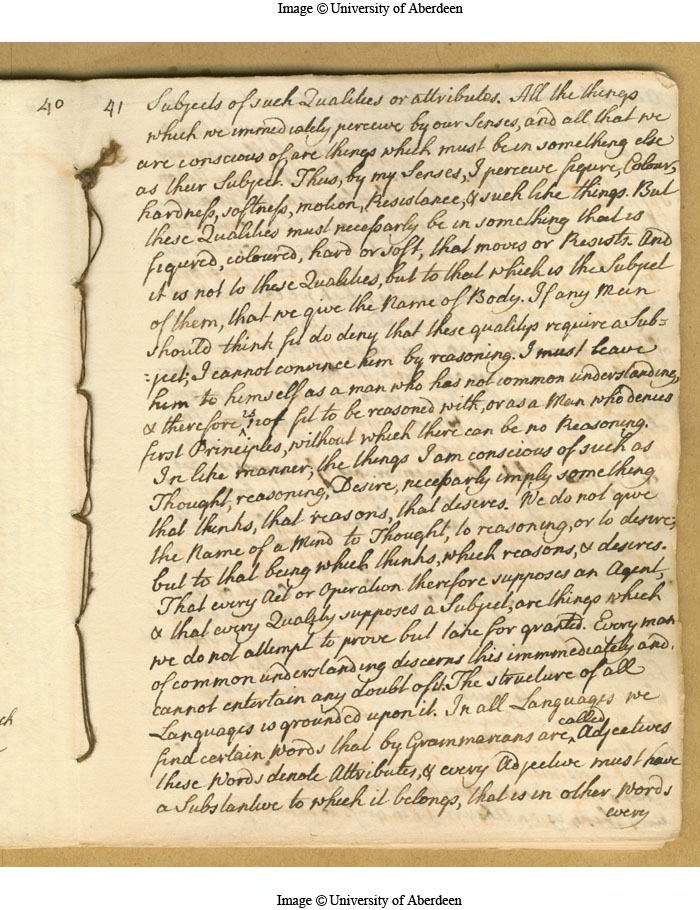 Image © University of Aberdeen
40
41
Subjects of such Qualities or attributes. All the things
which we immediately perceive by our Senses, and all that we
are conscious of, are things which must be in something else
as their Subject. Thus, by my Senses, I perceive figure, Colour,
hardness, softness, motion, Resistance, & such like things. But
these Qualities must necessarly be in something that is
figured, coloured, hard or soft, that moves or Resists. And
it is not to these Qualities, but to that which is the Subject
of them, that we give the Name of Body. If any Man
should think fit to deny that these qualitys require a Sub=
=ject; I cannot convince him by reasoning. I must leave
him to himself as a man who has not common understanding,
& therefore is not fit to be reasoned with, or as a Man who denies
first Principles, without which there can be no Reasoning.
In like manner, the things I am conscious of such as
Thought, reasoning, Desire, necessarly imply something
that thinks, that reasons, that desires. We do not give
the Name of a Mind to Thought, to reasoning, or to desire;
but to that being which thinks, which reasons, & desires.
That every Act or Operation therefore supposes an Agent,
& that every Quality supposes a Subject, are things which
we do not attempt to prove but take for granted. Every man
of common understanding discerns this immmediately and
cannot entertain any doubt of it. The structure of all
Languages is grounded upon it. In all Languages we
find certain words that by Grammarians are called Adjectives
these Words denote Attributes, & every Adjective must have
a Substantive to which it belongs, that is in other Words
every
ch
Image © University of Aberdeen